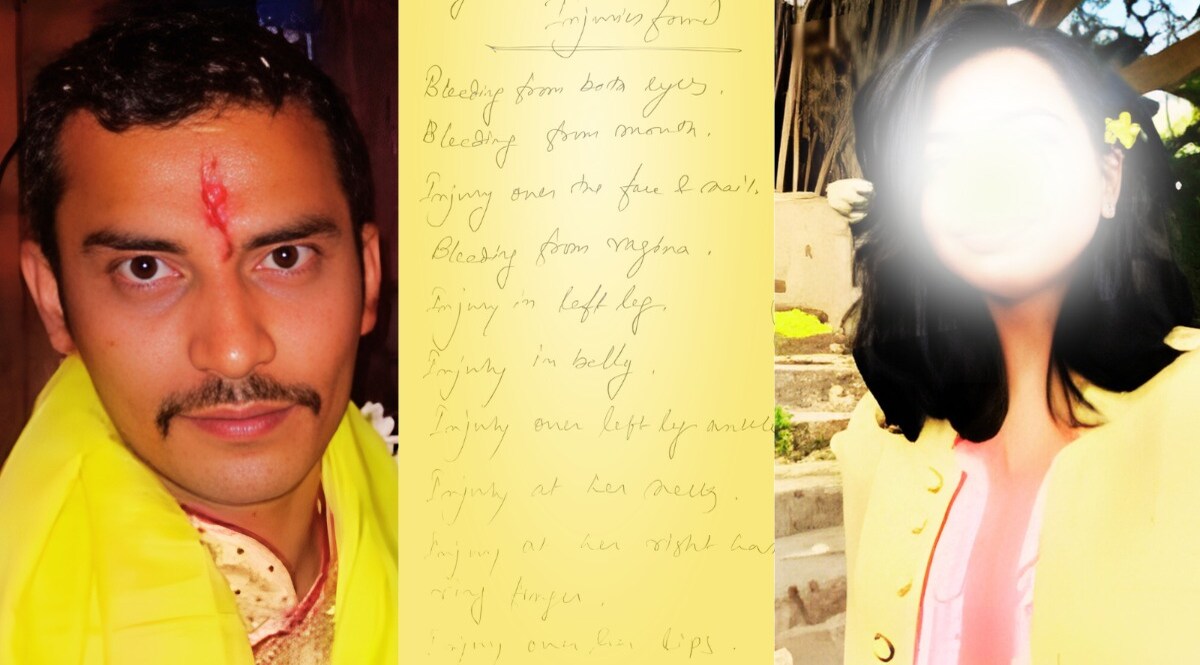 Injuries found
Bleeding from both eyes.
Bleeding from mouth.
Injury over the face & nail.
Bleeding from vagina.
Injury in left leg.
Injury in belly.
Injury over left leg ankle
Injury at her neck.
Injury at her right han
ring finger.
Injury over her lips.